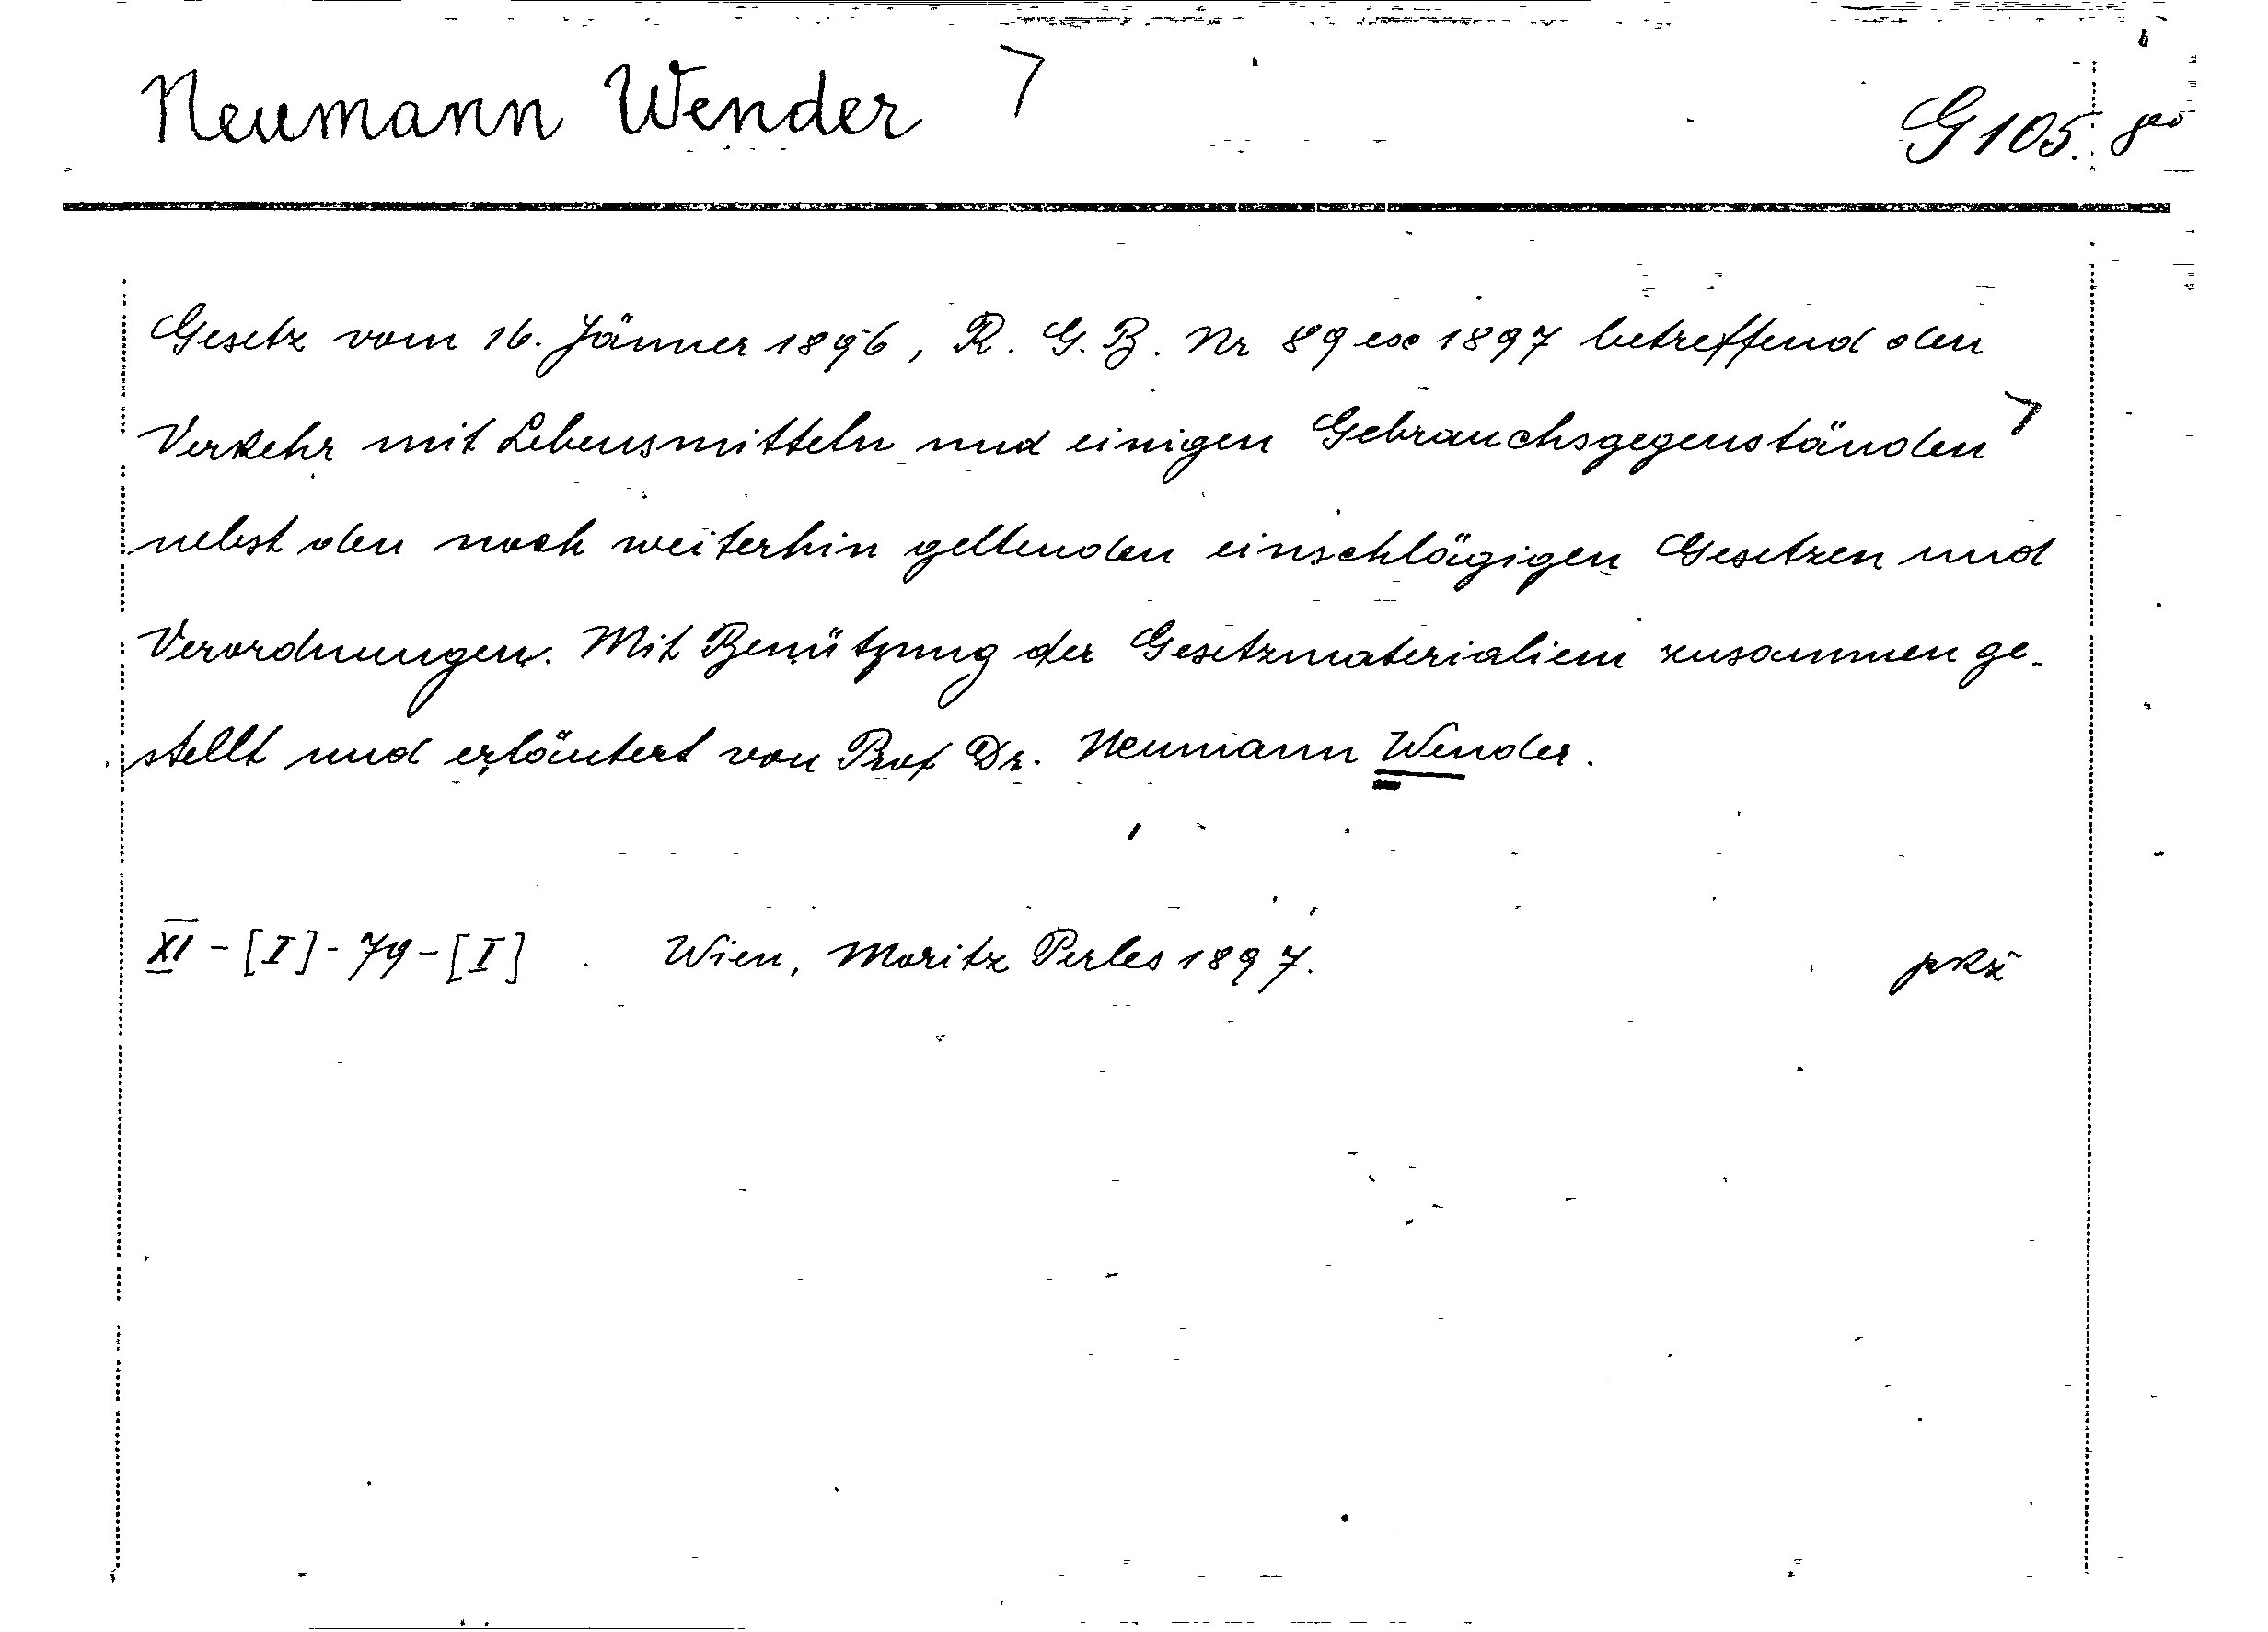 Neumann Wender
G 105.
Gesetz vom 16. Jänner 1896, R. G. B. Nr 89 ex 1897 betreffend den
Verkehr mit Lebensmitteln und einigen Gebrauchsgegenständen
nebst den noch weiterhin geltenden einschlägigen Gesetzen und
Verordnungen. Mit Benützung der Gesetzmaterialien zusammen ge-
stellt und erläutert von Prof Dr. Neumann Wender.
XI - [I] - 79 - [I] . Wien, Moritz Perles 1897.